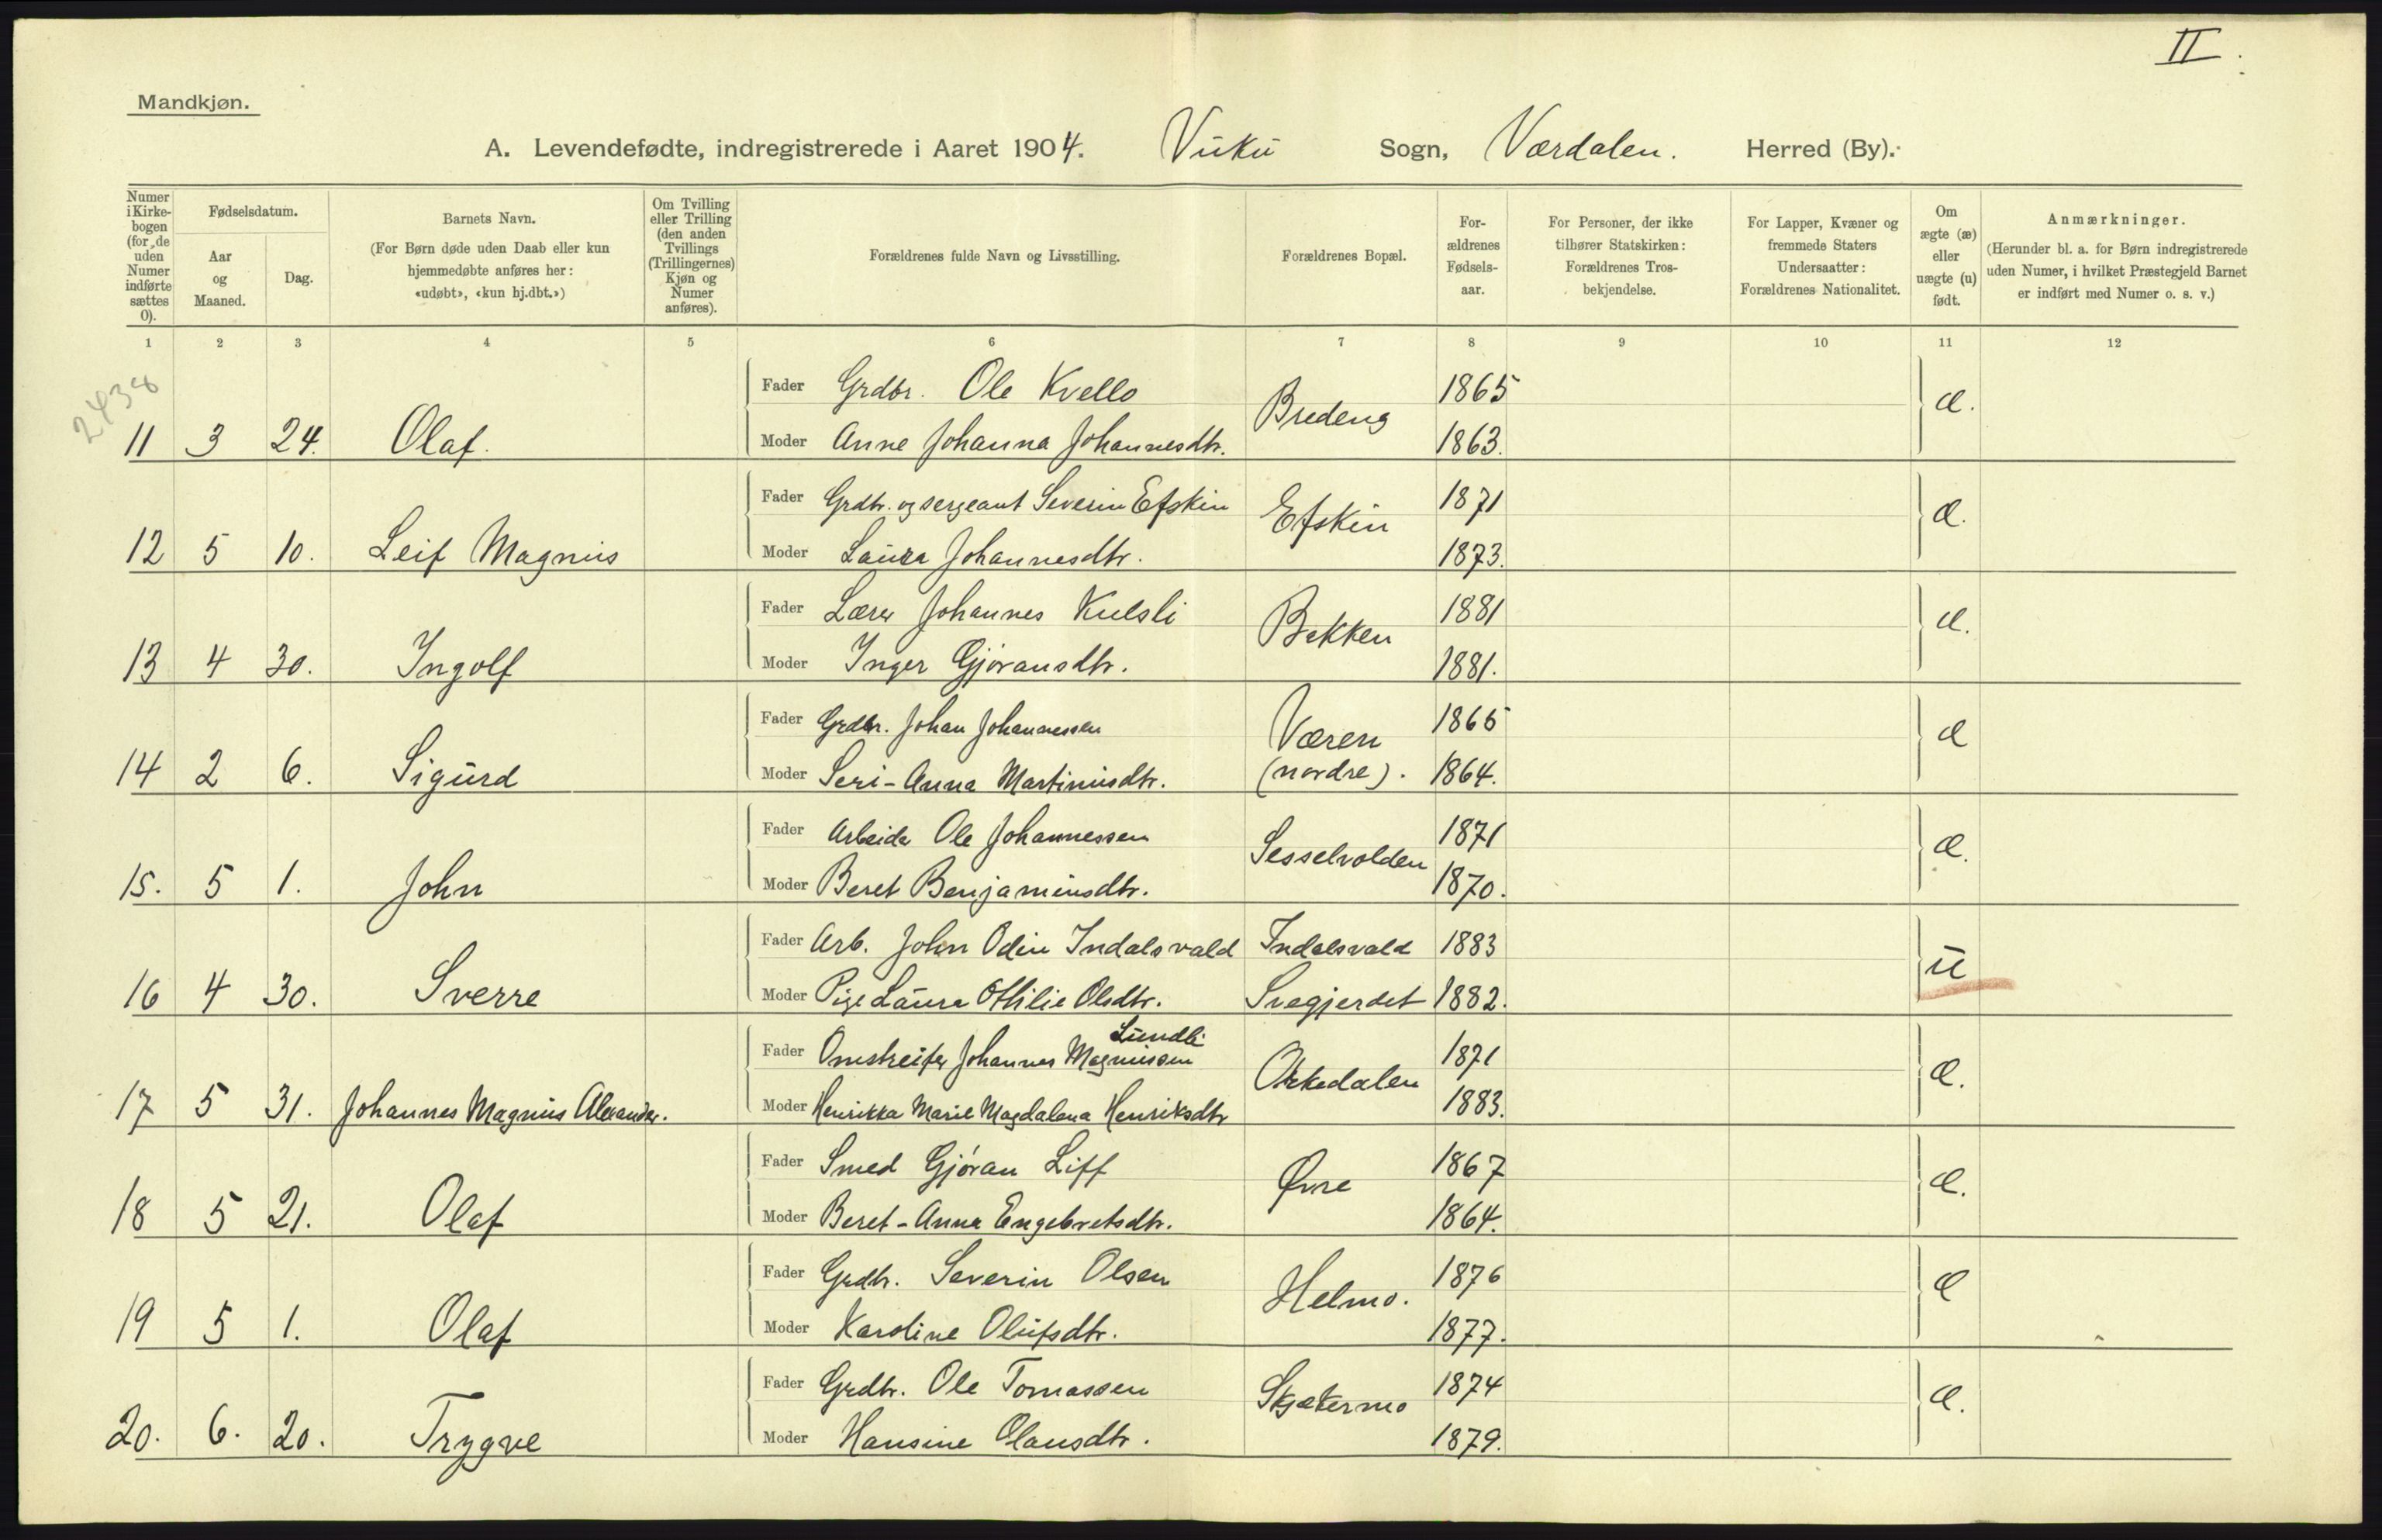 II.
Mandkjøn.
A. Levendefødte, indregistrerede i Aaret 1904. Vuku Sogn, Værdalen. Herred (By).
Numer i Kirke-bogen (for de uden Numer indførte sættes 0).
Fødselsdatum.
Aar og Maaned.
Dag.
Barnets Navn.
(For Børn døde uden Daab eller kun hjemmedøbte anføres her: «udøbt», «kun hj.dbt.»)
Om Tvilling eller Trilling (den anden Tvillings (Trillingernes) Kjøn og Numer anføres).
Forældrenes fulde Navn og Livsstilling.
Forældrenes Bopæl.
For-ældrenes Fødsels-aar.
For Personer, der ikke tilhører Statskirken: Forældrenes Tros-bekjendelse.
For Lapper, Kvæner og fremmede Staters Undersaatter: Forældrenes Nationalitet.
Om ægte (æ) eller uægte (u) født.
Anmærkninger.
(Herunder bl. a. for Børn indregistrerede uden Numer, i hvilket Præstegjeld Barnet er indført med Numer o. s. v.)
1 2 3 4 5 6 7 8 9 10 11 12
2438
Fader Grdbr. Ole Kvello 1865
11 3 24. Olaf. Moder Anne Johanna Johannesdtr. Bredeng 1863. æ.
Fader Grdbr. og sergeant Severin Efskin 1871
12 5 10. Leif Magnus Moder Laura Johannesdtr. Efskin 1873. æ.
Fader Lærer Johannes Kulsli 1881
13 4 30. Ingolf Moder Inger Gjøransdtr. Bekken 1881. æ.
Fader Grdbr. Johan Johannessen Væren 1865
14 2 6. Sigurd Moder Seri-Anna Martinusdtr. (nordre). 1864. æ
Fader Arbeider Ole Johannessen 1871
15. 5 1. John Moder Beret Benjaminsdtr. Sesselvolden 1870. æ.
Fader Arb. John Odin Indalsvald Indalsvald 1883
16 4 30. Sverre Moder Pige Laura Otilie Olsdtr. Svegjerdet 1882. u
Lundli
Fader Omstreifer Johannes Magnussen 1871
17 5 31. Johannes Magnus Alexander. Moder Henrikka Marie Magdalena Henriksdtr Orkedalen 1883. æ.
Fader Smed Gjøran Liff 1867
18 5 21. Olaf Moder Beret-Anna Engebretsdtr. Øvre 1864. æ.
Fader Grdbr. Severin Olsen 1876
19 5 1. Olaf Moder Karoline Olufsdtr. Helmo. 1877. æ
Fader Grdbr. Ole Tomassen 1874
20. 6. 20. Trygve Moder Hansine Olausdtr. Skjækermo 1879. æ.